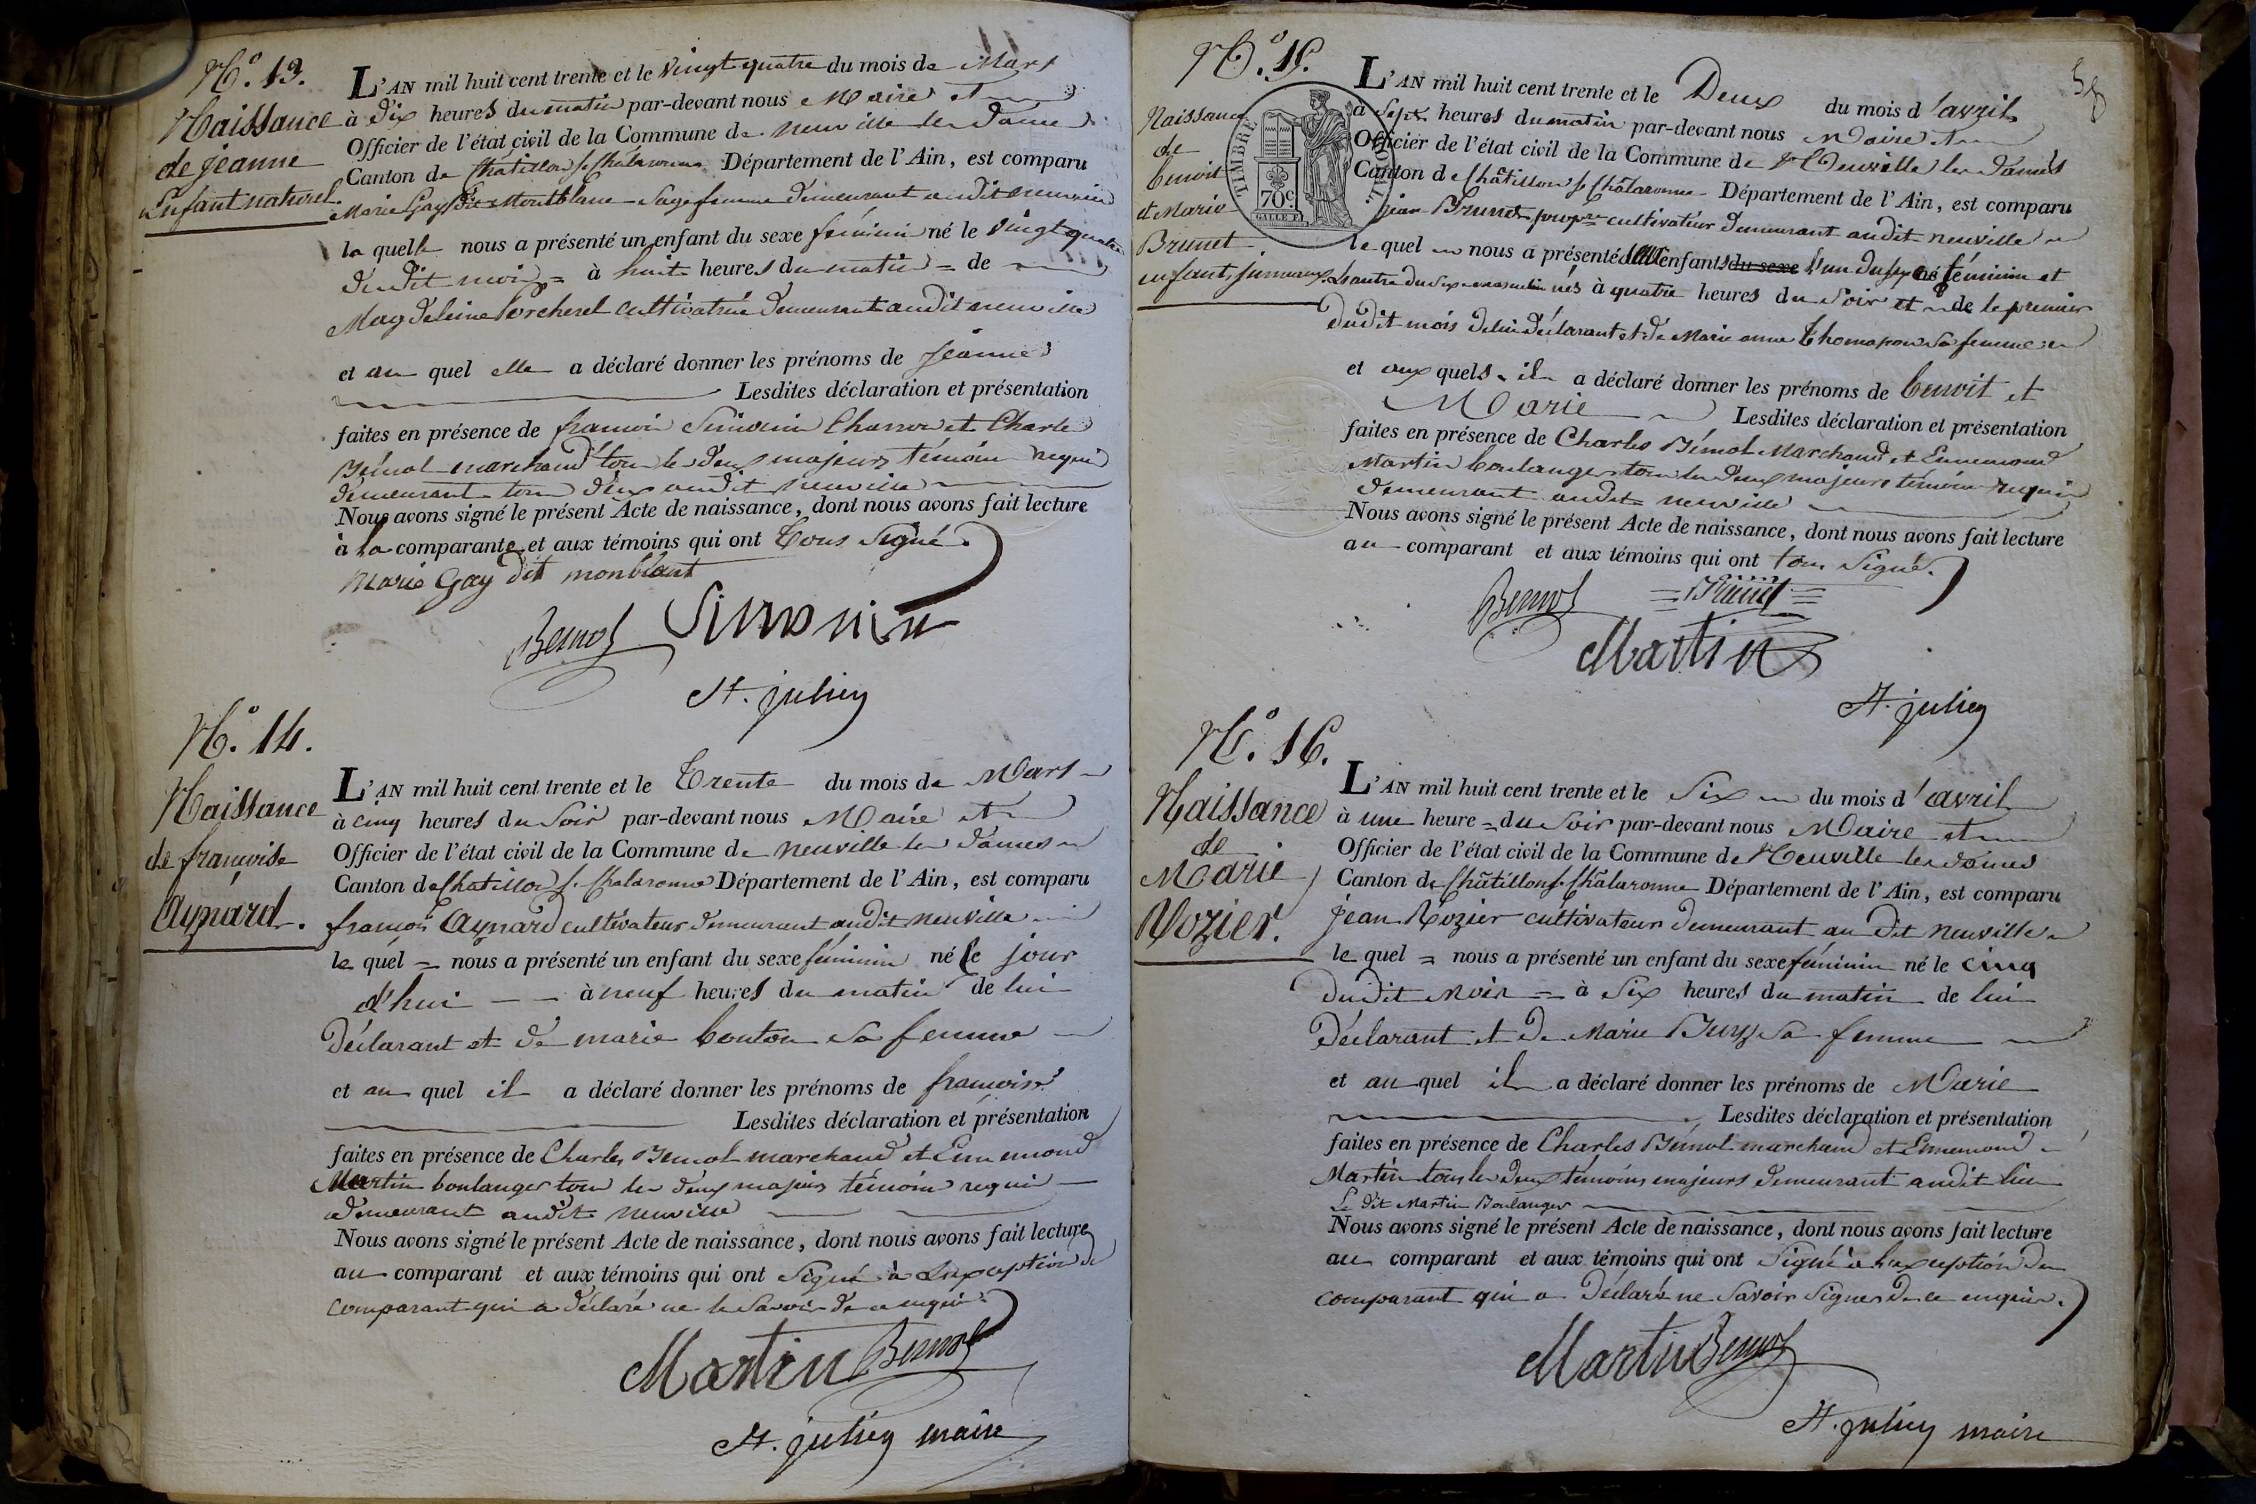 N.° 13.
Naissance
de jeanne
Enfant naturel.
L'AN mil huit cent trente et le vingt quatre du mois de Mars
à dix heures du matin par-devant nous Maire et
Officier de l'état civil de la Commune de neuville les dames
Canton de Chatillon s. Chalaronne Département de l'Ain, est comparu
Marie Gay dit Montblanc Sage femme demeurant audit neuville
la quelle nous a présenté un enfant du sexe féminin né le vingt quatre
dudit mois = à huit heures du matin = de
Magdeleine Porcherel cultivatrice demeurant audit neuville
et au quel elle a déclaré donner les prénoms de jeanne
Lesdites déclaration et présentation
faites en présence de françois Simonin Charron et Charle
Bémol marchand tous les deux majeurs témoins requis
demeurant tous deux audit neuville
Nous avons signé le présent Acte de naissance, dont nous avons fait lecture
à la comparante et aux témoins qui ont tous Signé.
Marie Gay dit monblant
Bemol Simonin
St. julien
N.° 14.
Naissance
de françoise
Aynard.
L'AN mil huit cent trente et le Trente du mois de Mars
à cinq heures du Soir par-devant nous Maire et
Officier de l'état civil de la Commune de neuville les dames
Canton de Chatillon s. Chalaronne Département de l'Ain, est comparu
françois Aynard cultivateur demeurant audit neuville
le quel = nous a présenté un enfant du sexe féminin né le jour
d'hui à neuf heures du matin de lui
déclarant et de marie bouton sa femme
et au quel il a déclaré donner les prénoms de françoise
Lesdites déclaration et présentation
faites en présence de Charles Bemol marchand et Ennemond
Martin boulanger tous les deux majeurs témoins requis
demeurant audit neuville
Nous avons signé le présent Acte de naissance, dont nous avons fait lecture
au comparant et aux témoins qui ont Signé à l'exception du
comparant qui a déclaré ne le Savoir de ce enquis.
Martin Bemol
St. julien maire
58
N.° 15.
Naissance
de
benoit
et Marie
Brunet
enfants jumeaux.
TIMBRE ROYAL.
70c.
L'AN mil huit cent trente et le Deux du mois d'avril
à Sept heures du matin par-devant nous Maire et
Officier de l'état civil de la Commune de Neuville les Dames
Canton de Châtillon s Châlaronne Département de l'Ain, est comparu
jean Brunet propre cultivateur demeurant audit neuville
le quel nous a présenté deux enfants du sexe l'un du sexe féminin et
L'autre du Sexe masculin nés à quatre heures du Soir et de le premier
dudit mois de lui déclarant et de Marie anne Thomasson sa femme
et aux quels il a déclaré donner les prénoms de benoit et
Marie Lesdites déclaration et présentation
faites en présence de Charles Bémol Marchand et Ennemond
Martin boulanger tous les deux majeurs témoins requis
demeurant audit neuville
Nous avons signé le présent Acte de naissance, dont nous avons fait lecture
au comparant et aux témoins qui ont tous Signé.
Bemol Brunet
Martin
St. julien
N.° 16.
Naissance
de
Marie
Rozier.
L'AN mil huit cent trente et le Six du mois d'avril
à une heure = du Soir par-devant nous Maire et
Officier de l'état civil de la Commune de Neuville les dames
Canton de Châtillon s. Châlaronne Département de l'Ain, est comparu
jean Rozier cultivateur demeurant au dit neuville
le quel = nous a présenté un enfant du sexe féminin né le cinq
dudit mois = à Six heures du matin de lui
déclarant et de Marie Buys sa femme
et au quel il a déclaré donner les prénoms de Marie
Lesdites déclaration et présentation
faites en présence de Charles Bémol marchand et Ennemond
Martin tous les deux témoins majeurs demeurant audit lieu
Le dit Martin Boulanger
Nous avons signé le présent Acte de naissance, dont nous avons fait lecture
au comparant et aux témoins qui ont Signé à l'exception du
comparant qui a déclaré ne Savoir Signer de ce enquis.
Martin Bemol
St. julien maire